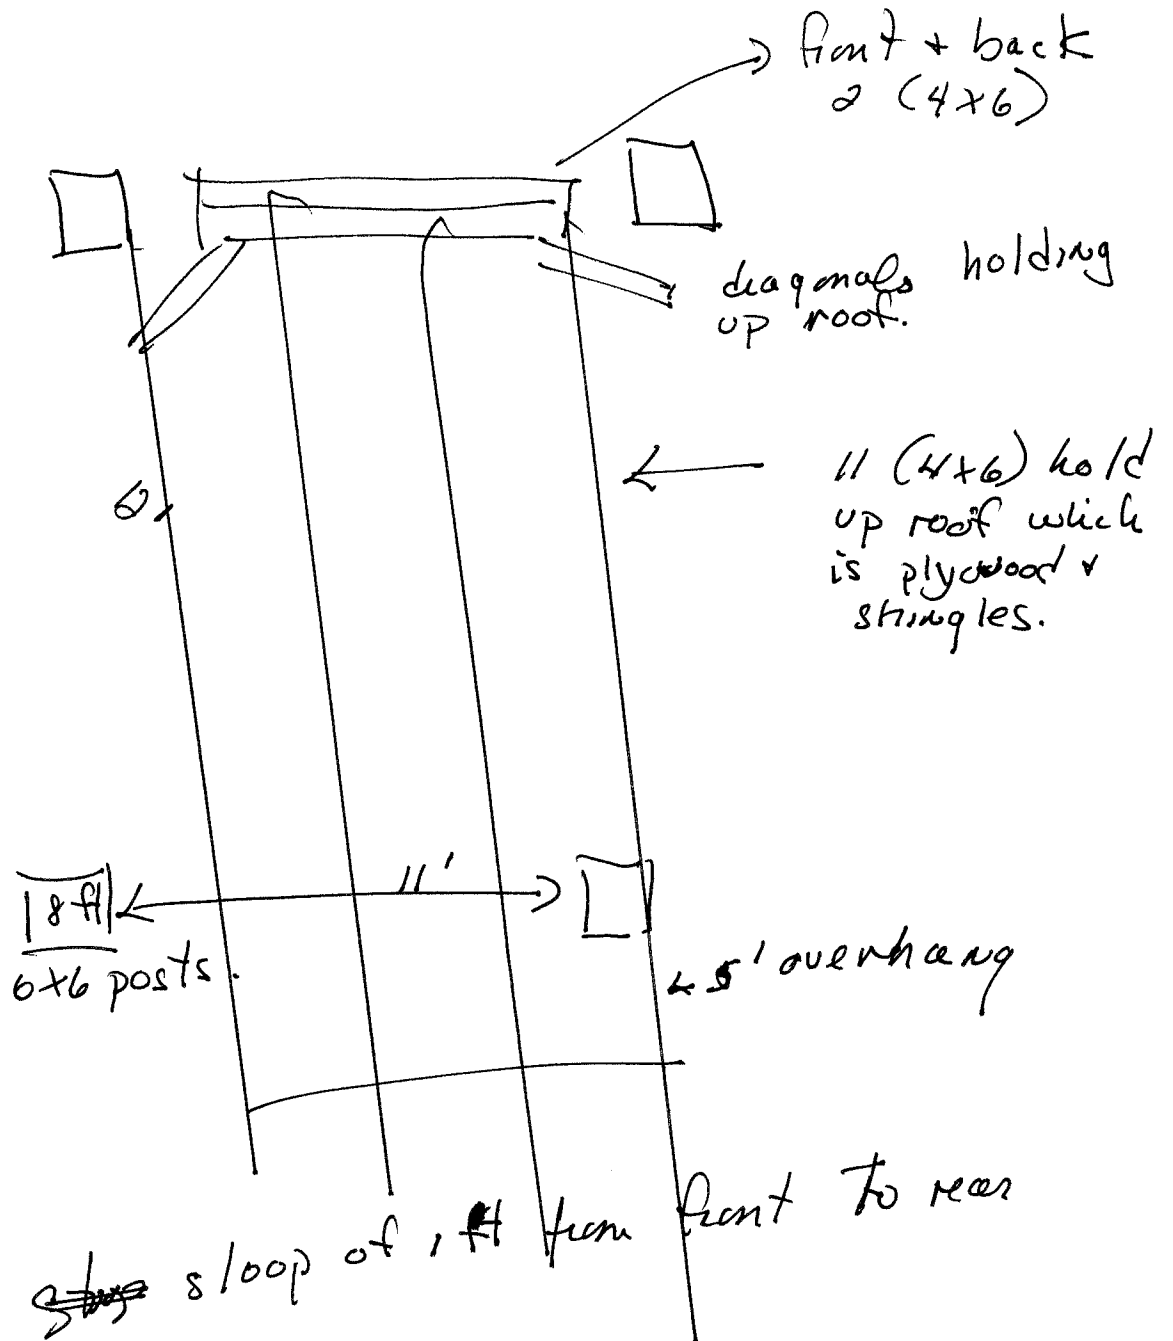 front + back
2 (4x6)
diagonals holding
up roof.
11 (4x6) hold
up roof which
is plywood +
shingles.
11'
8 ft
6x6 posts.
5' overhang
sloop of 1 ft from front to rear